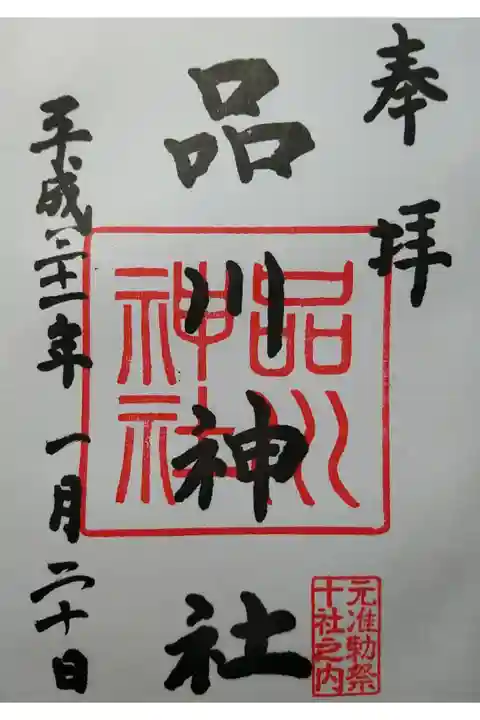 奉拝
品川神社
品川
神社
元准勅祭
十社之内
平成二十一年一月二十日